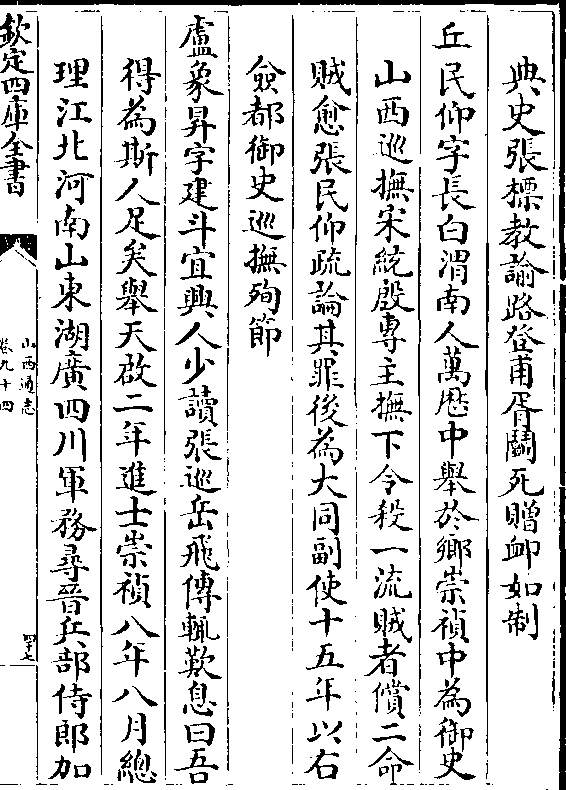 典史張標教諭路登甫胥鬭死贈䘏如制
丘民仰字長白渭南人萬厯中舉於鄉崇禎中為御史
山西巡撫宋統殷專主撫下令殺一流賊者償二命
賊愈張民仰疏論其罪後為大同副使十五年以右
僉都御史巡撫殉節
盧象昇字建斗宜興人少讀張巡岳飛傳輒歎息曰吾
得為斯人足矣舉天啟二年進士崇禎八年八月總
理江北河南山東湖廣四川軍務尋晉兵部侍郎加
欽定四庫全書
山西通志
卷九十四
四十七